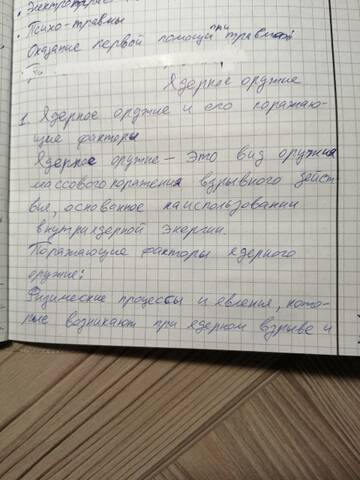 Электротравмы
• Психо-травмы
Оказание первой помощи при травмах
Ядерное оружие
1. Ядерное оружие и его поражаю-
щие факторы
Ядерное оружие – это вид оружия
массового поражения взрывного дейст
вия, основанное на использовании
внутриядерной энергии.
Поражающие факторы ядерного
оружие:
Физические процессы и явленья, кото-
рые возникают при ядерном взрыве и